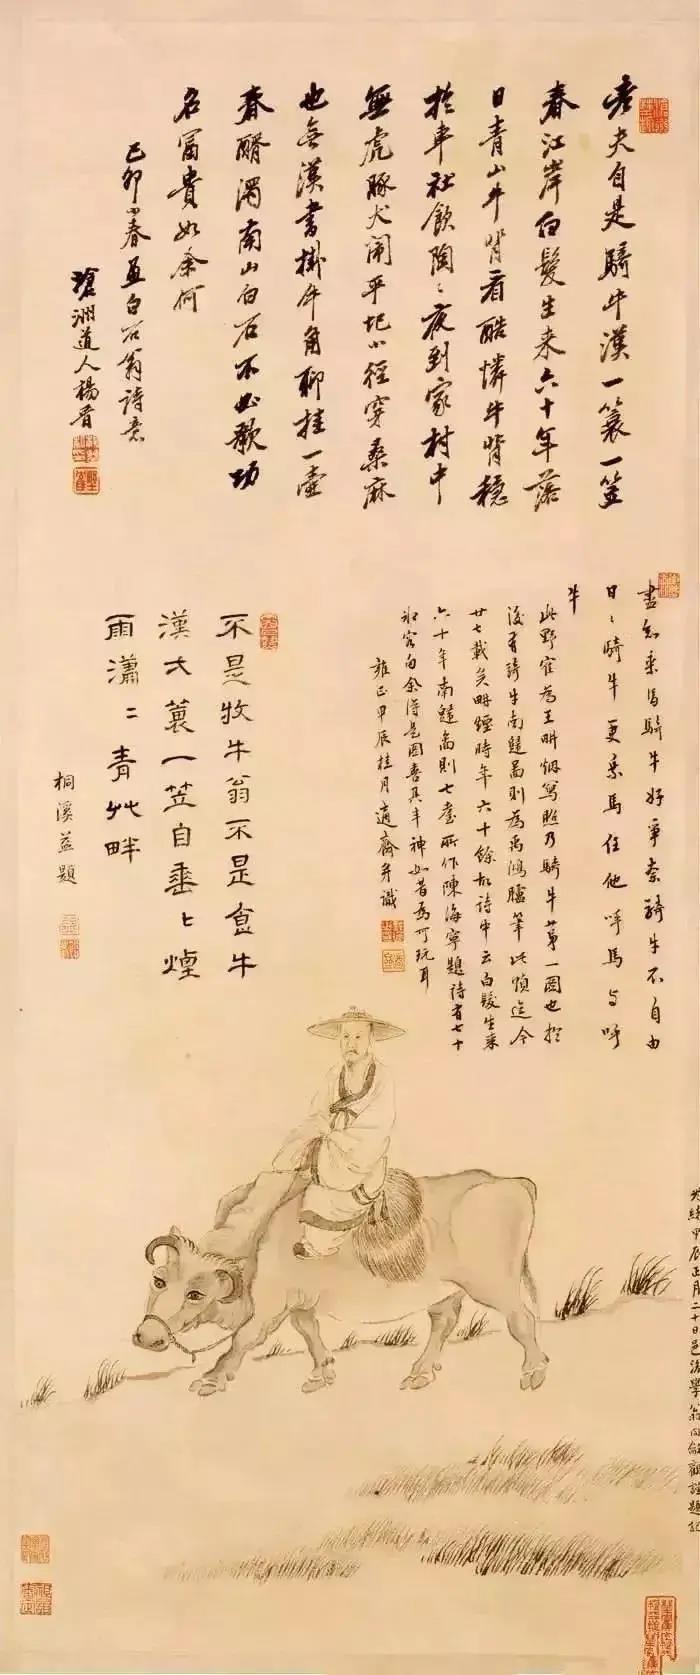 老夫自是騎牛漢一蓑一笠
春江岸白髮生来六十年落
日青山牛背看酷憐牛背穩
於車社飲陶〻夜到家村中
無虎豚犬閙平圯小徑穿桑麻
也無漢書掛牛角聊挂一壺
春醑濁南山白石不必歌功
名富貴如余何
己卯小春画白石翁詩意
滄洲道人楊晋
盡知乘馬騎牛好爭柰騎牛不自由
日〻騎牛更乘馬任他呼馬与呼
牛
此野窂為王畊烟寫照乃騎牛第一圖也於
後有騎牛南熲啚則為禹鴻臚筆此幀迄今
廿七載矣畊煙時年六十餘故詩中云白髮生来
六十年南啚則七耋所作陳海寧題詩有七十
老客句余得是圖喜其丰神如昔為可玩耳
雍正甲辰桂月適齋并識
不是牧牛翁不是食牛
漢大蓑一笠自垂〻煙
雨瀟〻青艸畔
桐溪益題
光緒甲辰正月二十日邑後學翁同龢觀謹題記